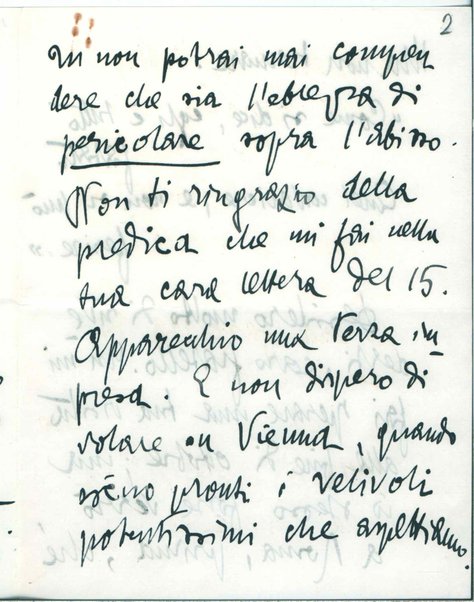 2
Tu non potrai mai compren
dere che sia l'ebbrezza di
pericolare sopra l'abisso.
Non ti ringrazio della
predica che mi fai nella
tua cara lettera del 15.
Apparecchio una terza im
presa. E non dispero di
volare su Vienna, quando
sieno pronti i velivoli
potentissimi che aspettiamo.